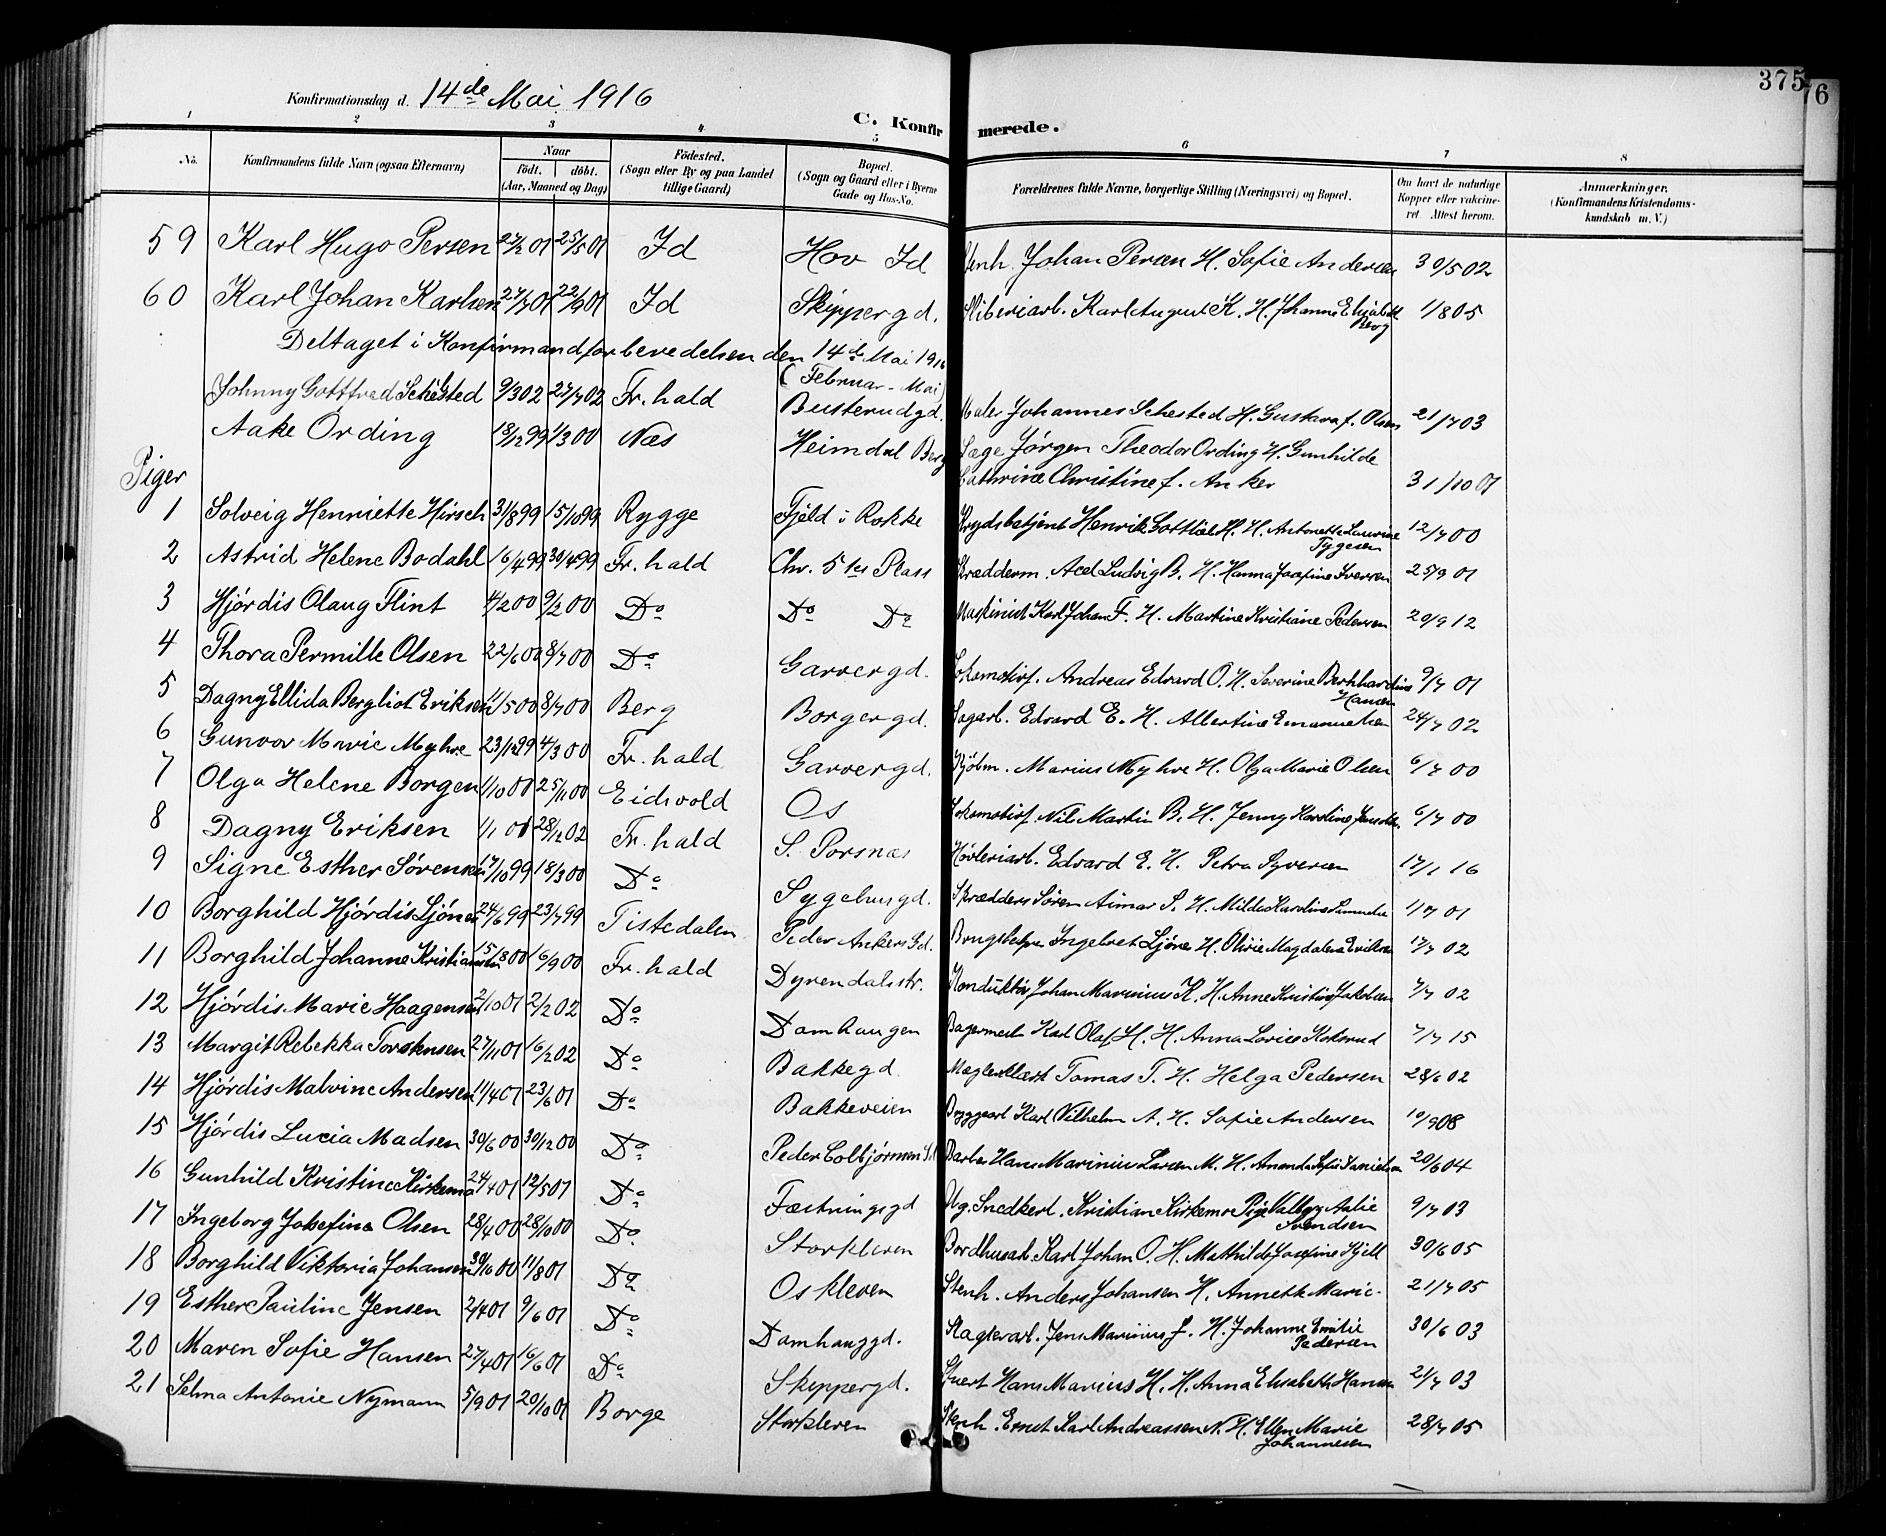 375
76
Konfirmationsdag d. 14de Mai 1916
C. Konfir merede.
1 2 3 4 5 6 7 8
No. Konfirmandens fulde Navn (ogsaa Efternavn) Naar født. døbt. (Aar, Maaned og Dag) Fødested. (Sogn eller By og paa Landet tillige Gaard) Bopæl. (Sogn og Gaard eller i Byerne Gade og Hus-No. Forældrenes fulde Navne, borgerlige Stilling (Næringsvei) og Bopæl. Om havt de naturlige Kopper eller vakcineret. Attest herom. Anmærkninger. (Konfirmandens Kristendomskundskab m. V.)
59 Karl Hugo Persen 27/2 01 25/5 01 Id Hov Id Stenh. Johan Persen H. Sofie Andersen 30/5 02
60 Karl Johan Karlsen 27/7 01 22/9 01 Id Skippergd. Sliberiarb. Karl August K. H. Johanne Elisabeth Berg 1/8 05
Deltaget i Konfirmandforberedelsen den 14de Mai 1916
(Februar - Mai)
Johnny Gottfred Schested 9/3 02 27/7 02 Fr.hald Busterudgd. Maler Johannes Schested H. Gustava f. Olsen 21/7 03
Aake Ording 18/12 99 1/3 00 Næs Heimdal Berg Læge Jørgen Theodor Ording H. Gunhilde
Cathrine Christine f. Anker 31/10 01
Piger
1 Solveig Henriette Hirsch 31/8 99 15/10 99 Rygge Fjeld i Rokke Krydsbetjent Henrik Gottlieb H. H. Antonette Laurine Tygesen 12/7 00
2 Astrid Helene Bodahl 16/4 99 30/4 99 Fr.hald Chr. 5tes Plass Skrædderm. Axel Ludvig B. H. Hanna Josefine Iversen 25/9 01
3 Hjørdis Olaug Flint 4/2 00 9/2 00 Do Do Do Maskinist Karl Johan F. H. Martine Kristiane Pedersen 20/9 12
4 Thora Pernille Olsen 22/6 00 8/7 00 Do Garvergd. Lokomotivf. Andreas Edvard O. H. Severine Bernhardine Hansen 9/7 01
5 Dagny Ellida Bergliot Eriksen 11/5 00 8/7 00 Berg Borgergd. Sagarb. Edvard E. H. Albertine Emanuelsen 24/7 02
6 Gunvor Marie Myhre 23/12 99 4/3 00 Fr.hald Garvergd. Kjøbm. Marius Myhre H. Olga Marie Olsen 6/7 00
7 Olga Helene Borgen 1/10 00 25/11 00 Eidsvold Os Lokomotivf. Nil Martin B. H. Jenny Hardine 6/7 00
8 Dagny Eriksen 1/1 01 28/12 02 Fr.hald S. Porsnæs Høvleriarb. Edvard E. H. Petra Syversen 17/1 16
9 Signe Esther Sørensen 17/10 99 18/3 00 Do Sygehusgd. Skrædders Søren Aimar S. H. Milda Karoline 1/7 01
10 Borghild Hjørdis Ljøner 24/6 99 23/7 99 Tistedalen Peder Ankers Gd. Ingebret Ljøne H. Olivie Magdalene Eriksen 17/7 02
11 Borghild Johanne Kristiansen 15/8 00 16/9 00 Fr.hald Dyrendalsstr. Konduktør Johan Marinius K. H. Anne Kristine Jakobsen 7/7 02
12 Hjørdis Marie Haagensen 2/10 01 2/2 02 Do Damhaugen Bagermest Karl Olaf H. H. Anna Lovise Koksrud 7/7 15
13 Margit Rebekka Torstensen 27/11 01 16/2 02 Do Bakkegd. Tomas T. H. Helga Pedersen 28/6 02
14 Hjørdis Malvine Andersen 11/4 01 23/6 01 Do Bakkeveien Bryggearb Karl Vilhelm A. H. Sofie Andersen 10/9 08
15 Hjørdis Lucia Madsen 30/6 00 30/12 00 Do Peder Colbjørnsen S. Barber Hans Marinius Larsen M. H. Amanda Sofie Danielsen 20/6 04
16 Gunhild Kristine Kirkemo 24/4 01 12/5 01 Do Fæstningsgd Ug. Snedkerl. Kristian Kirkemo Pige Valborg Aslie Svendsen 9/7 03
17 Ingeborg Josefine Olsen 28/4 00 28/10 00 Do Storkleven Bordhusarb. Karl Johan O. H. Mathilde Josefine Kjell 30/6 05
18 Borghild Viktoria Johansen 30/10 00 11/8 01 Do Oskleven Stenh. Anders Johansen H. Annette Marie 21/7 05
19 Esther Pauline Jensen 2/4 01 9/6 01 Do Damhauggd. Slagterarb. Jens Marinius J. H. Johanne Emilie Pedersen 30/6 03
20 Maren Sofie Hansen 27/4 01 16/6 01 Do Skippergd. Stuert Hans Marius H. H. Anna Elisabeth Hansen 21/7 03
21 Selma Antonie Nymann 5/9 01 20/10 01 Borge Storkleven Stenh. Ernst Karl Andreassen N. H. Ellen Marie Johannesen 28/7 05